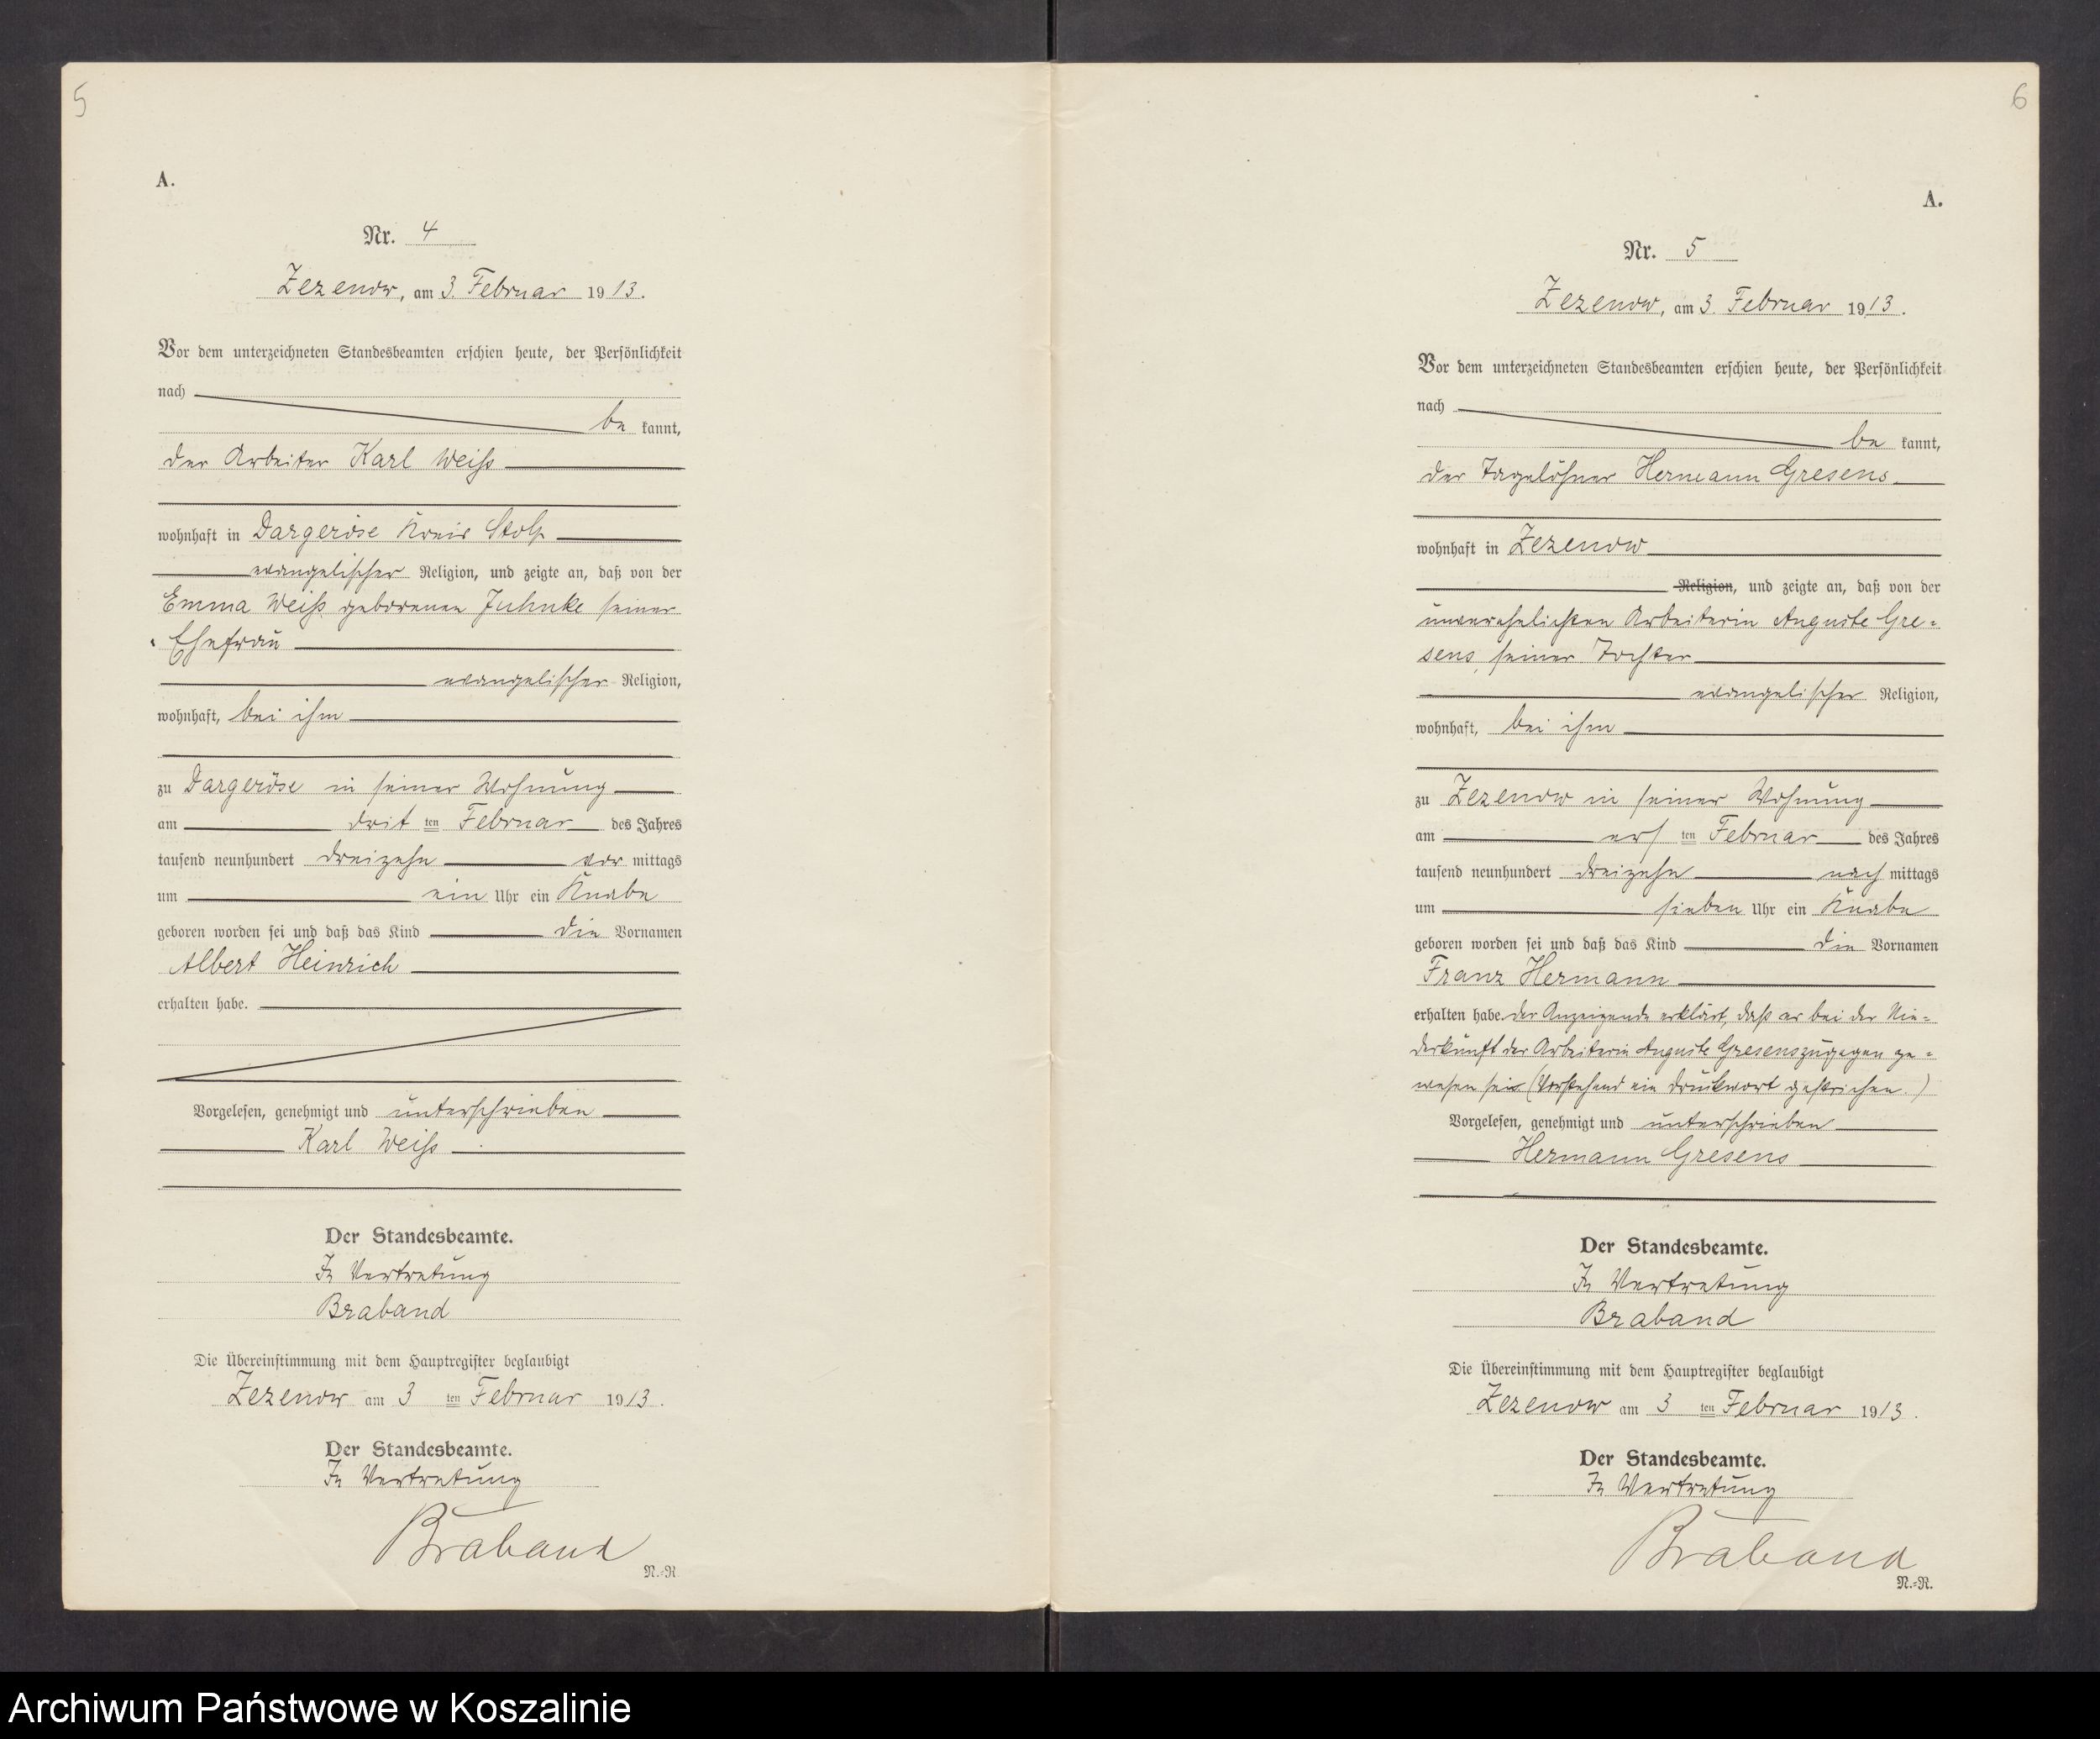 5
A.
Nr. 4
Zezenow, am 3. Februar 1913.
Vor dem unterzeichneten Standesbeamten erschien heute, der Persönlichkeit
nach
be kannt,
der Arbeiter Karl Weiß
wohnhaft in Dargeröse Kreis Stolp
evangelischer Religion, und zeigte an, daß von der
Emma Weiß geborenen Juhnke seiner
Ehefrau
evangelischer Religion,
wohnhaft, bei ihm
zu Dargeröse in seiner Wohnung
am drit ten Februar des Jahres
tausend neunhundert dreizehn vor mittags
um ein Uhr ein Knabe
geboren worden sei und daß das Kind die Vornamen
Albert Heinrich
erhalten habe.
Vorgelesen, genehmigt und unterschrieben
Karl Weiß
Der Standesbeamte.
In Vertretung
Braband
Die Übereinstimmung mit dem Hauptregister beglaubigt
Zezenow am 3 ten Februar 1913.
Der Standesbeamte.
In Vertretung
Braband
N.-R.
6
A.
Nr. 5
Zezenow, am 3. Februar 1913.
Vor dem unterzeichneten Standesbeamten erschien heute, der Persönlichkeit
nach
be kannt,
der Tagelöhner Hermann Gresens
wohnhaft in Zezenow
Religion, und zeigte an, daß von der
unverehelichten Arbeiterin Auguste Gre-
sens, seiner Tochter
evangelischer Religion,
wohnhaft, bei ihm
zu Zezenow in seiner Wohnung
am ers ten Februar des Jahres
tausend neunhundert dreizehn nach mittags
um sieben Uhr ein Knabe
geboren worden sei und daß das Kind die Vornamen
Franz Hermann
erhalten habe. Der Anzeigende erklärt, daß er bei der Nie-
derkunft der Arbeiterin Auguste Gresens zugegen ge-
wesen sei. (Vorstehend ein Druckwort gestrichen.)
Vorgelesen, genehmigt und unterschrieben
Hermann Gresens
Der Standesbeamte.
In Vertretung
Braband
Die Übereinstimmung mit dem Hauptregister beglaubigt
Zezenow am 3 ten Februar 1913.
Der Standesbeamte.
In Vertretung
Braband
N.-R.
Archiwum Państwowe w Koszalinie